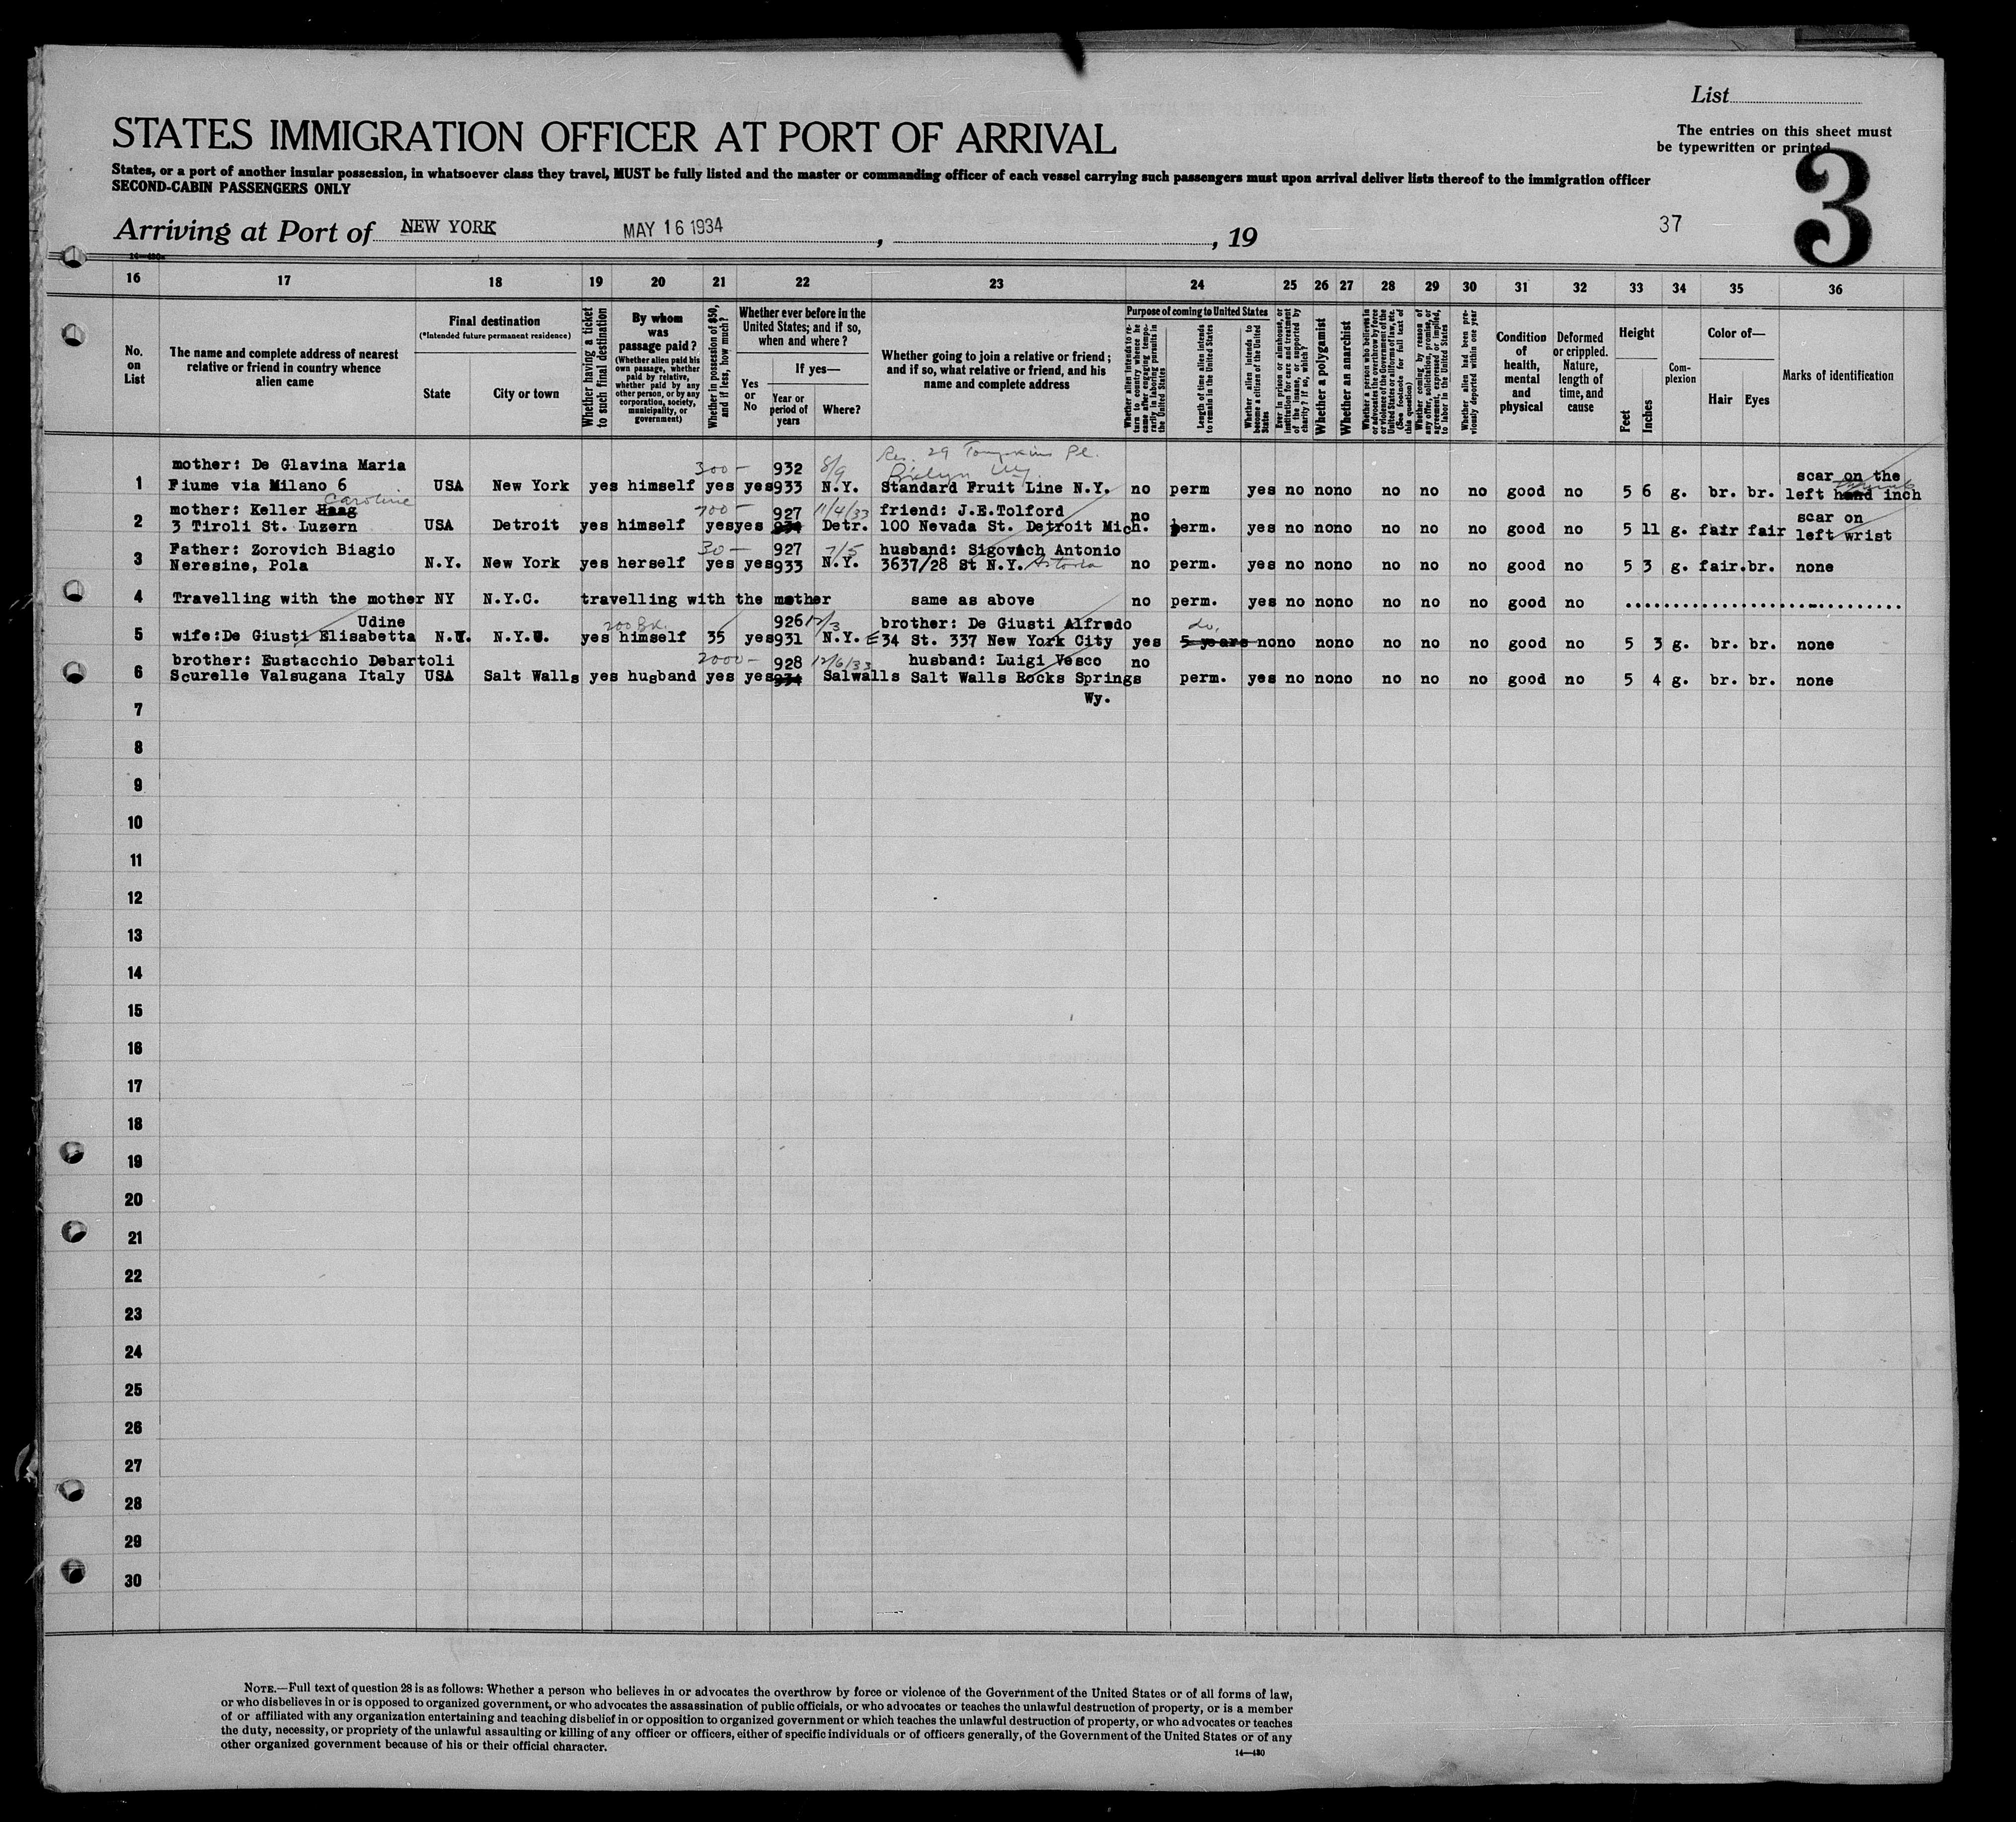 List
STATES IMMIGRATION OFFICER AT PORT OF ARRIVAL
The entries on this sheet must
be typewritten or printed
3
States, or a port of another insular possession, in whatsoever class they travel, MUST be fully listed and the master or commanding officer of each vessel carrying such passengers must upon arrival deliver lists thereof to the immigration officer
SECOND-CABIN PASSENGERS ONLY
Arriving at Port of NEW YORK MAY 16 1934 , , 19 37
14—430
16 17 18 19 20 21 22 23 24 25 26 27 28 29 30 31 32 33 34 35 36
No. on List
The name and complete address of nearest relative or friend in country whence alien came
Final destination
(*Intended future permanent residence)
State
City or town
Whether having a ticket to such final destination
By whom was passage paid?
(Whether alien paid his own passage, whether paid by relative, whether paid by any other person, or by any corporation, society, municipality, or government)
Whether in possession of $50, and if less, how much?
Whether ever before in the United States; and if so, when and where?
Yes or No
If yes—
Year or period of years
Where?
Whether going to join a relative or friend; and if so, what relative or friend, and his name and complete address
Purpose of coming to United States
Whether alien intends to return to country whence he came after engaging temporarily in laboring pursuits in the United States
Length of time alien intends to remain in the United States
Whether alien intends to become a citizen of the United States
Ever in prison or almshouse, or institution for care and treatment of the insane, or supported by charity? If so, which?
Whether a polygamist
Whether an anarchist
Whether a person who believes in or advocates the overthrow by force or violence of the Government of the United States or all forms of law, etc. (See footnote for full text of this question)
Whether coming by reason of any offer, solicitation, promise, or agreement, expressed or implied, to labor in the United States
Whether alien had been previously deported within one year
Condition of health, mental and physical
Deformed or crippled. Nature, length of time, and cause
Height
Feet
Inches
Complexion
Color of—
Hair Eyes
Marks of identification
Res. 29 Tompkins Pl.
mother: De Glavina Maria 300— 932 8/9 Bklyn NY. scar on the
1 Fiume via Milano 6 USA New York yes himself yes yes 933 N.Y. Standard Fruit Line N.Y. no perm yes no no no no no no good no 5 6 g. br. br. left hand inch
Caroline
mother: Keller Haag 700— 927 11/4/33 friend: J.E.Tolford no scar on
2 3 Tiroli St. Luzern USA Detroit yes himself yes yes 934 Detr. 100 Nevada St. Detroit Mich. perm. yes no no no no no no good no 5 11 g. fair fair left wrist
Father: Zorovich Biagio 30— 927 7/5 husband: Sigovich Antonio
3 Neresine, Pola N.Y. New York yes herself yes yes 933 N.Y. 3637/28 St N.Y. Astoria no perm. yes no no no no no no good no 5 3 g. fair. br. none
4 Travelling with the mother NY N.Y.C. travelling with the mother same as above no perm. yes no no no no no no good no
Udine 200 926 12/3 brother: De Giusti Alfredo do.
5 wife:De Giusti Elisabetta N.Y. N.Y. yes himself 35 yes 931 N.Y. E 34 St. 337 New York City yes 5 years no no no no no no no good no 5 3 g. br. br. none
brother: Eustacchio Debartoli 2000— 928 12/6/33 husband: Luigi Vesco no
6 Scurelle Valsugana Italy USA Salt Walls yes husband yes yes 934 Salwalls Salt Walls Rocks Springs perm. yes no no no no no no good no 5 4 g. br. br. none
Wy.
7
8
9
10
11
12
13
14
15
16
17
18
19
20
21
22
23
24
25
26
27
28
29
30
NOTE.—Full text of question 28 is as follows: Whether a person who believes in or advocates the overthrow by force or violence of the Government of the United States or of all forms of law,
or who disbelieves in or is opposed to organized government, or who advocates the assassination of public officials, or who advocates or teaches the unlawful destruction of property, or is a member
of or affiliated with any organization entertaining and teaching disbelief in or opposition to organized government or which teaches the unlawful destruction of property, or who advocates or teaches
the duty, necessity, or propriety of the unlawful assaulting or killing of any officer or officers, either of specific individuals or of officers generally, of the Government of the United States or of any
other organized government because of his or their official character.
14—430